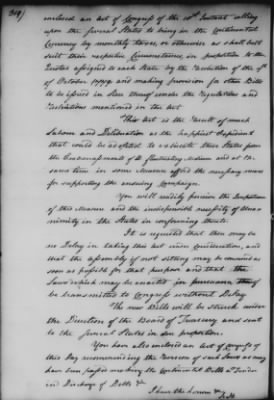 enclosed an Act of Congress of the 18th Instant calling
upon the several States to bring in the Continental
Currency by monthly taxes, or otherwise as shall best
suit their respective Circumstances, in proportion to the
Quotas assigned to each State by the Resolution of the 7th
of October 1779 and making provision for other Bills
to be issued in Lieu thereof under the Regulations and
Restrictions mentioned in the Act.
This Act is the Result of much
Labour and Deliberation as the happiest Expedient
that could be adopted to extricate these States from
the Embarrassments of a fluctuating Medium and at the
same time in some Measure afford the necessary means
for supporting the ensuing Campaign.
You will readily perceive the Importance
of this Measure and the indispensible necessity of Una-
nimity in the States in conforming thereto.
It is requested that there may be
no Delay in taking this Act under Consideration, and
that the assembly if not sitting may be convened as
soon as possible for that purpose and that the
Laws which may be enacted in pursuance thereof
be transmitted to Congress without Delay.
The new Bills will be struck under
the Direction of the Board of Treasury and sent
to the several States in due proportion.
You have also enclosed an Act of Congress of
this Day recommending the Revision of such Laws as may
have been passed making the Continental Bills a Tender
in Discharge of Debts &c
I have the honor &c
S. H.